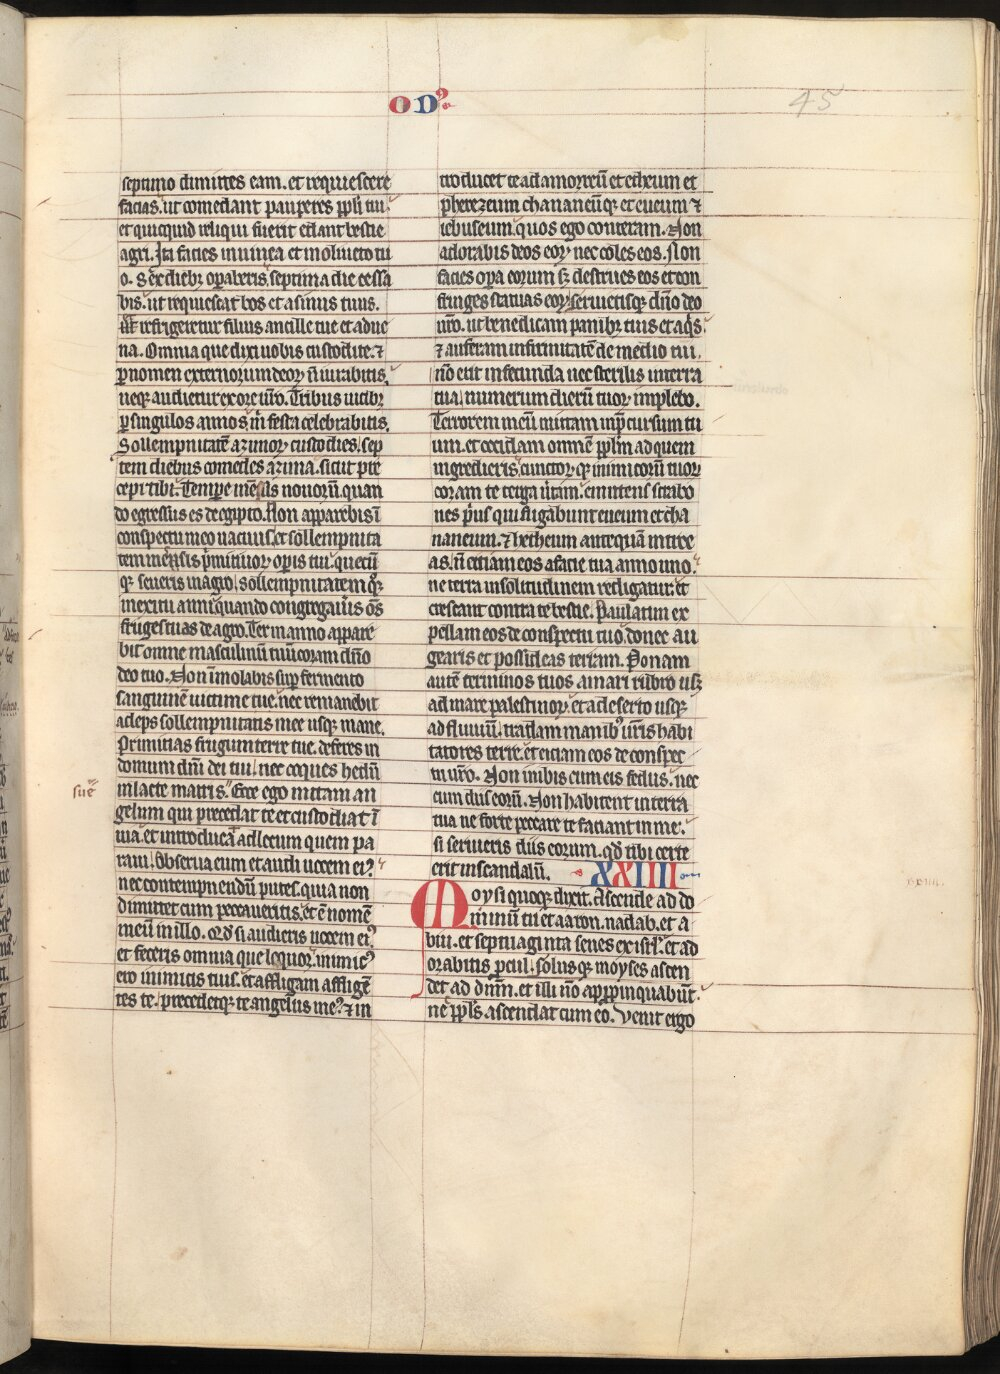 OD9
45
septimo dimittes eam. et requiescere
facias. ut comedant pauperes ppli tui.
et quicquid reliqui fuerit edant bestie
agri. Ita facies in uinea et in oliueto tu
o. Sex diebꝫ opaberis. septima die cessa
bis. ut requiescat bos et asinus tuus.
et refrigeretur filius ancille tue et adue
na. Omnia que dixi uobis custodite. ⁊
ꝑ nomen externorum deoꝝ ñ iurabitis.
neqꝫ audietur ex ore uro. Tribus uicibꝫ
ꝑ singulos annos m̃ festa celebrabitis.
Sollempnitatẽ azimoꝝ custodies. sep
tem diebus comedes azima. sicut pre
cepi tibi. Tempore mẽsis nouoꝝ. quan
do egressus es de egipto. Non apparebis ĩ
conspectu meo uacuus. et sollempnita
tem messis pͥmitiuoꝝ opis tui. quecũ
qꝫ seueris in agro. sollempnitatem qͦqꝫ
in exitu anni quando congregaueris õs
fruges tuas de agro. Ter in anno appare
bit omne masculinũ tuũ coram dño
deo tuo. Non ĩmolabis sup fermento
sanguinẽ uictime tue. nec remanebit
adeps sollempnitatis mee usqꝫ mane.
Primitias frugum terre tue. deferes in
domum dñi dei tui. nec coques hedũ
in lacte matris. Ecce ego mittam an
gelum qui precedat te et custodiat ĩ
uia. et introducat ad locum quem pa
raui. Obserua eum et audi uocem ei9
nec contempnendũ putes. quia non
dimittet cum peccaueritis. et ẽ nomẽ
meũ in illo. Qd si audieris uocem ei9
et feceris omnia que loquor. inimic9
ero inimicis tuis. et affligam affligẽ
tes te. precedetqꝫ te angelus me9. ⁊ in
suẽ
troducet te ad amorreũ et etheum et
pherezeum chananeũqꝫ et eueum ⁊
iebuseum. quos ego conteram. Non
adorabis deos eoꝝ nec coles eos. Non
facies opa eorum sꝫ destrues eos et con
fringes statuas eoꝝ. seruietisqꝫ dño deo
uro. ut benedicam panibꝫ tuis et aqͥs.
⁊ auferam infirmitatẽ de medio tui.
nõ erit infecunda nec sterilis in terra
tua. numerum dierũ tuoꝝ implebo.
Terrorem meũ mittam in p̃cursum tu
um. et occidam omnẽ pplm ad quem
ingredieris. cunctoꝝqꝫ inimicorũ tuoꝝ
coram te terga uertam. emittens scrabo
nes pͥus qui fugabunt eueum et cha
naneum. ⁊ hetheum antequã introe
as. ñ eiciam eos a facie tua anno uno.
ne terra in solitudinem redigatur. et
crescant contra te bestie. Paulatim ex
pellam eos de conspectu tuo donec au
gearis et possideas terram. Ponam
autẽ terminos tuos a mari rubro usqꝫ
ad mare palestinoꝝ. et a deserto usqꝫ
ad fluuiũ. tradam manibꝫ uris habi
tatores terre. et eiciam eos de conspec
tu uro. Non inibis cum eis fedus. nec
cum diis eorũ. Non habitent in terra
tua ne forte peccare te faciant in me.
si seruieris diis eorum. qd tibi certe
erit in scandalũ. XXIIII
xxiiii.
Moysi quoqꝫ dixit. Ascende ad do
minũ tu et aaron. nadab. et a
biu. et septuaginta senes ex isrl. et ad
orabitis procul. solusqꝫ moyses ascen
det ad dnm. et illi nõ appropinquabũt.
nec ppls ascendat cum eo. Venit ergo